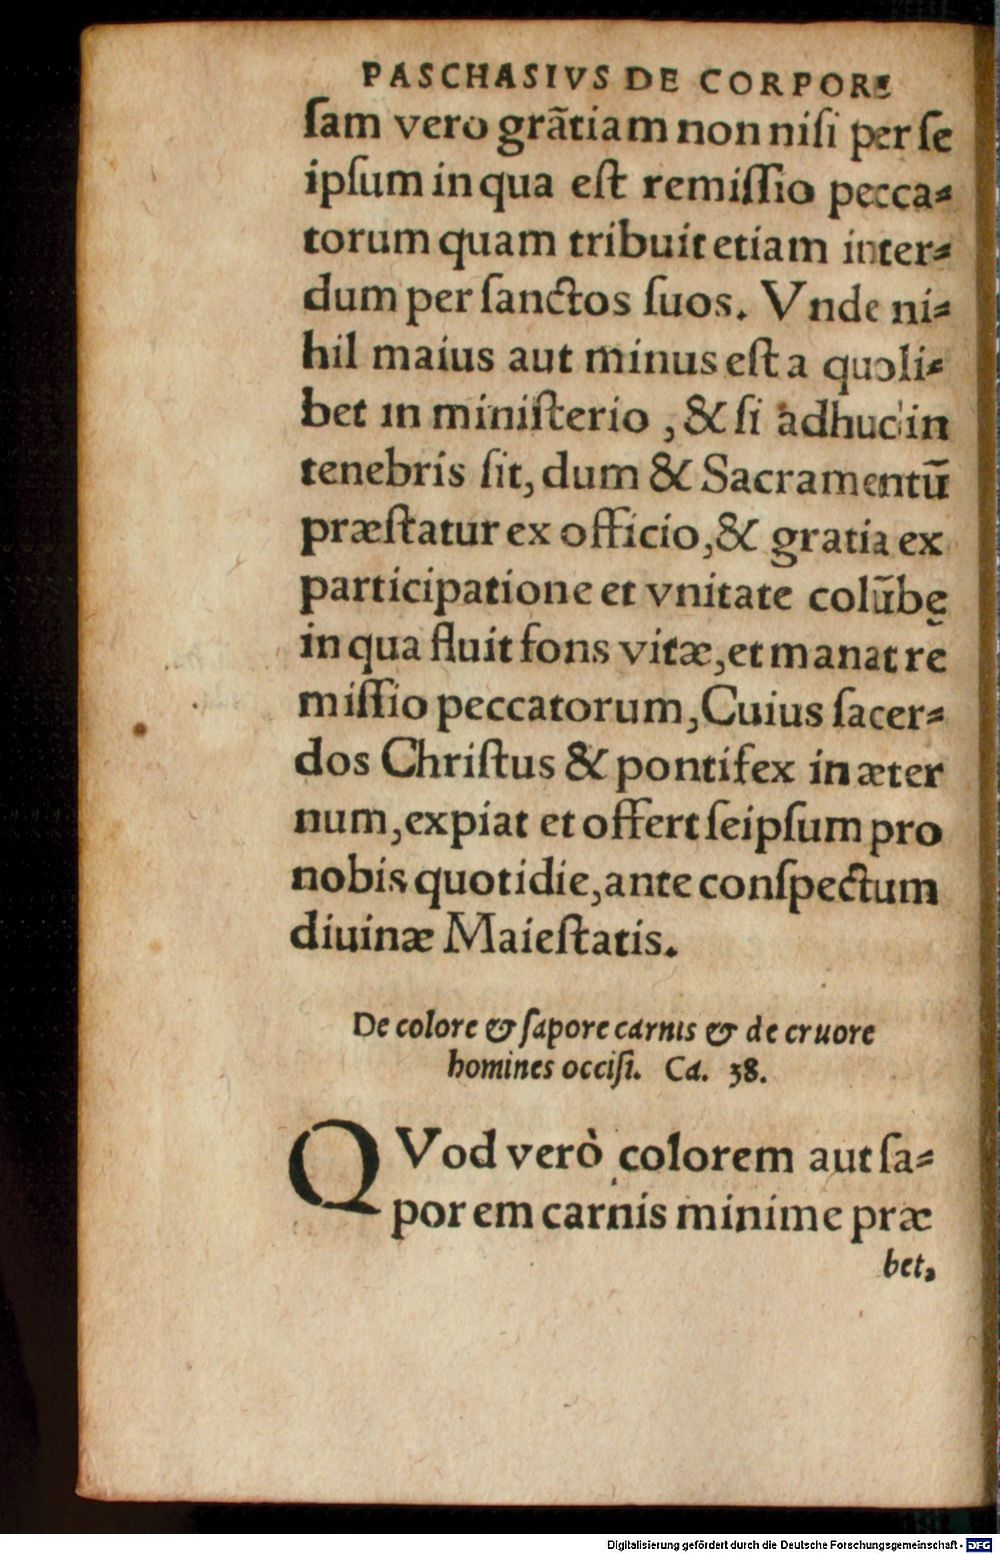 PASCHASIVS DE CORPORE
ſam vero grãtiam non niſi per ſe
ipſum in qua eſt remiſſio pecca⸗
torum quam tribuit etiam inter⸗
dum per ſanctos ſuos. Vnde ni⸗
hil maius aut minus eſt a quoli⸗
bet in miniſterio , & ſi adhuc in
tenebris ſit, dum & Sacramentũ
præſtatur ex officio, & gratia ex
participatione et vnitate colũbę
in qua fluit fons vitæ, et manat rē
miſſio peccatorum, Cuius ſacer⸗
dos Chriſtus & pontifex in æter
num, expiat et offert ſeipſum pro
nobis quotidie, ante conſpectum
diuinæ Maieſtatis.
De colore & ſapore carnis & de cruore
homines occiſi. Ca. 38.
QVod verò colorem aut ſa⸗
porem carnis minime præ
bet,
Digitalisierung gefördert durch die Deutsche Forschungsgemeinschaft - DFG